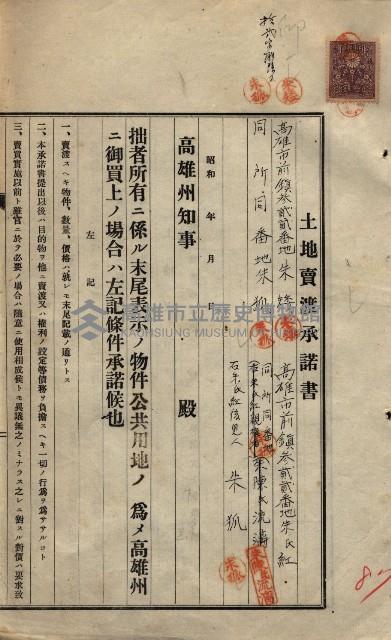 土地賣渡承諾書
高雄市前鎮參貳貳番地朱氏紅
高雄市前鎮參貳貳番地朱
同所同番地朱陳氏流濤
同所同番地朱狐
右朱氏紅後見人 朱狐
昭和 年 月 日
高雄州知事 殿
拙者所有ニ係ル末尾表示ノ物件公共用地ノ爲メ高雄州
ニ御買上ノ場合ハ左記條件承諾候也
左記
一、賣渡スヘキ物件、數量、價格ハ就レモ末尾記載ノ通リトス
二、本承諾書提出以後ハ目的物ヲ他ニ賣渡又ハ權利ノ設定等債務ヲ負擔スヘキ一切ノ行爲ヲ爲ササルコト
三、賣買實施以前ト雖官ニ於テ必要ノ場合ハ隨意ニ使用相成候トモ異議無之ノミナラス之レニ對スル對價ハ要求致
高雄市立歷史博物館
KAOHSIUNG MUSEUM OF HISTORY